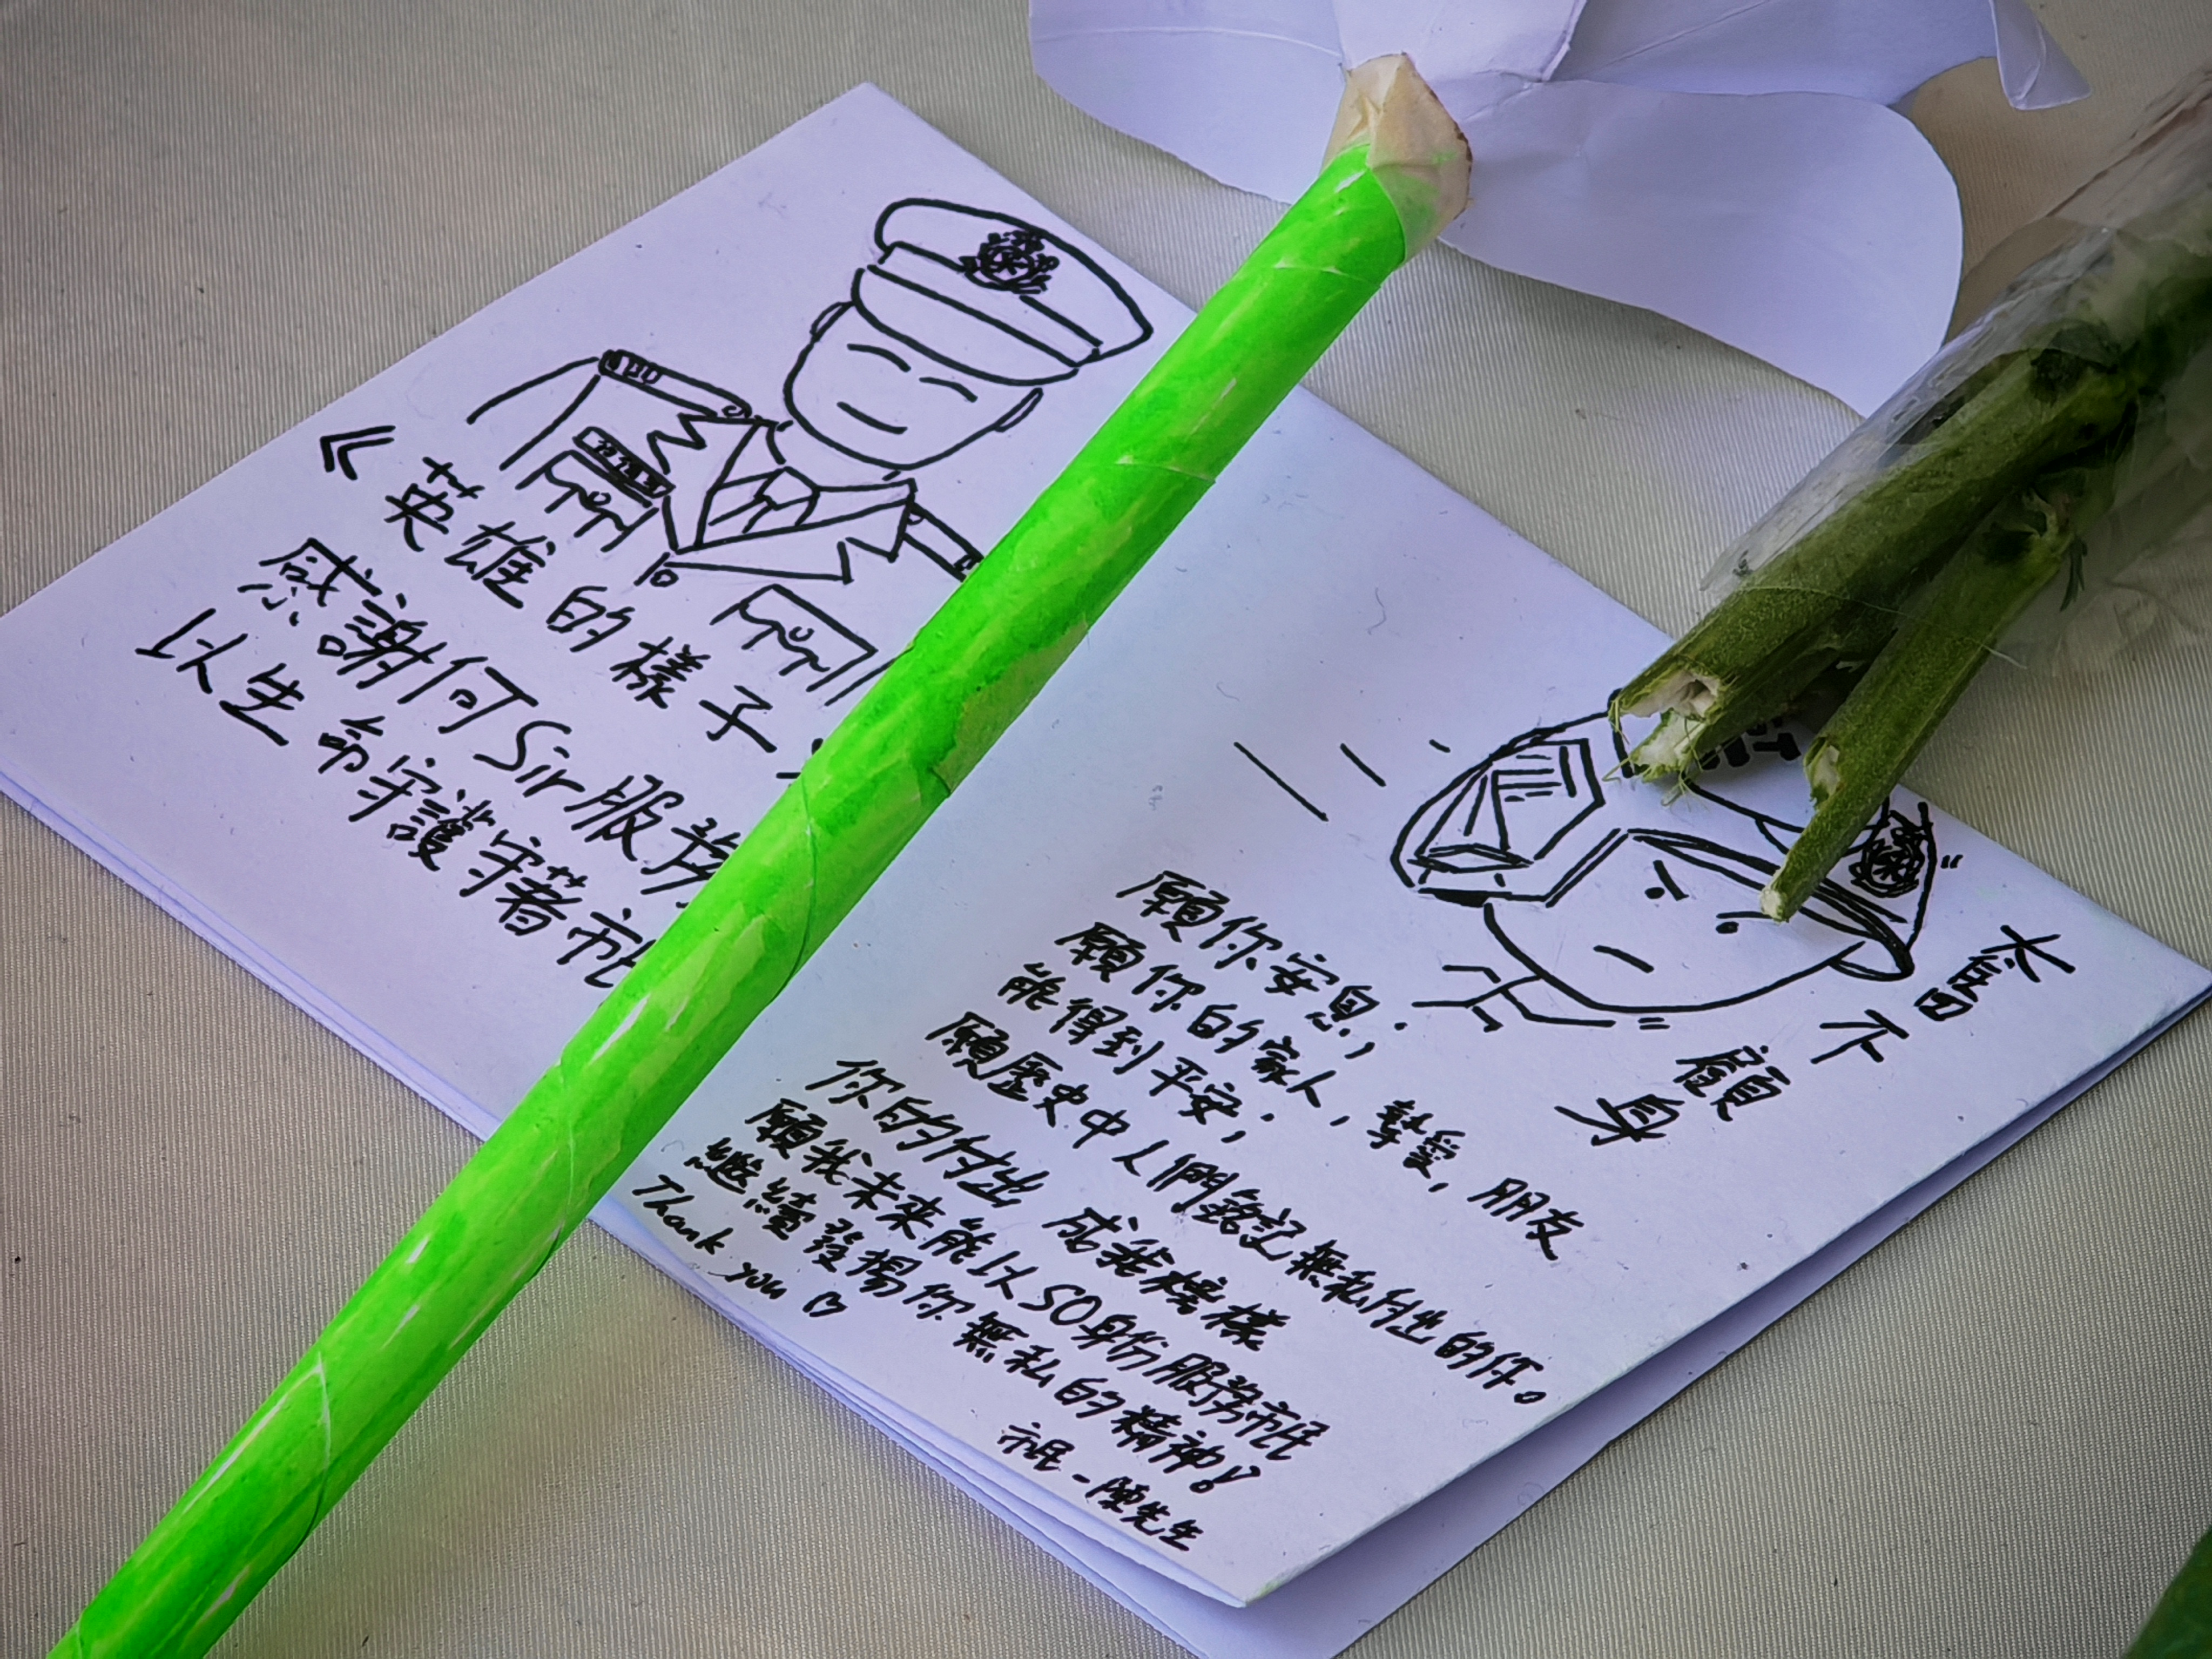 《英雄的樣子
感謝何Sir服務
以生命守護守著市民
奮不顧身
願你安息；
願你的家人，摯愛，朋友
能得到平安；
願歷史中人們銘記無私付出的你。
你的付出 成我榜樣
願我未來能以SO身份服務市民
繼續發揚你無私的精神！
Thank you ♡
市民-陳先生